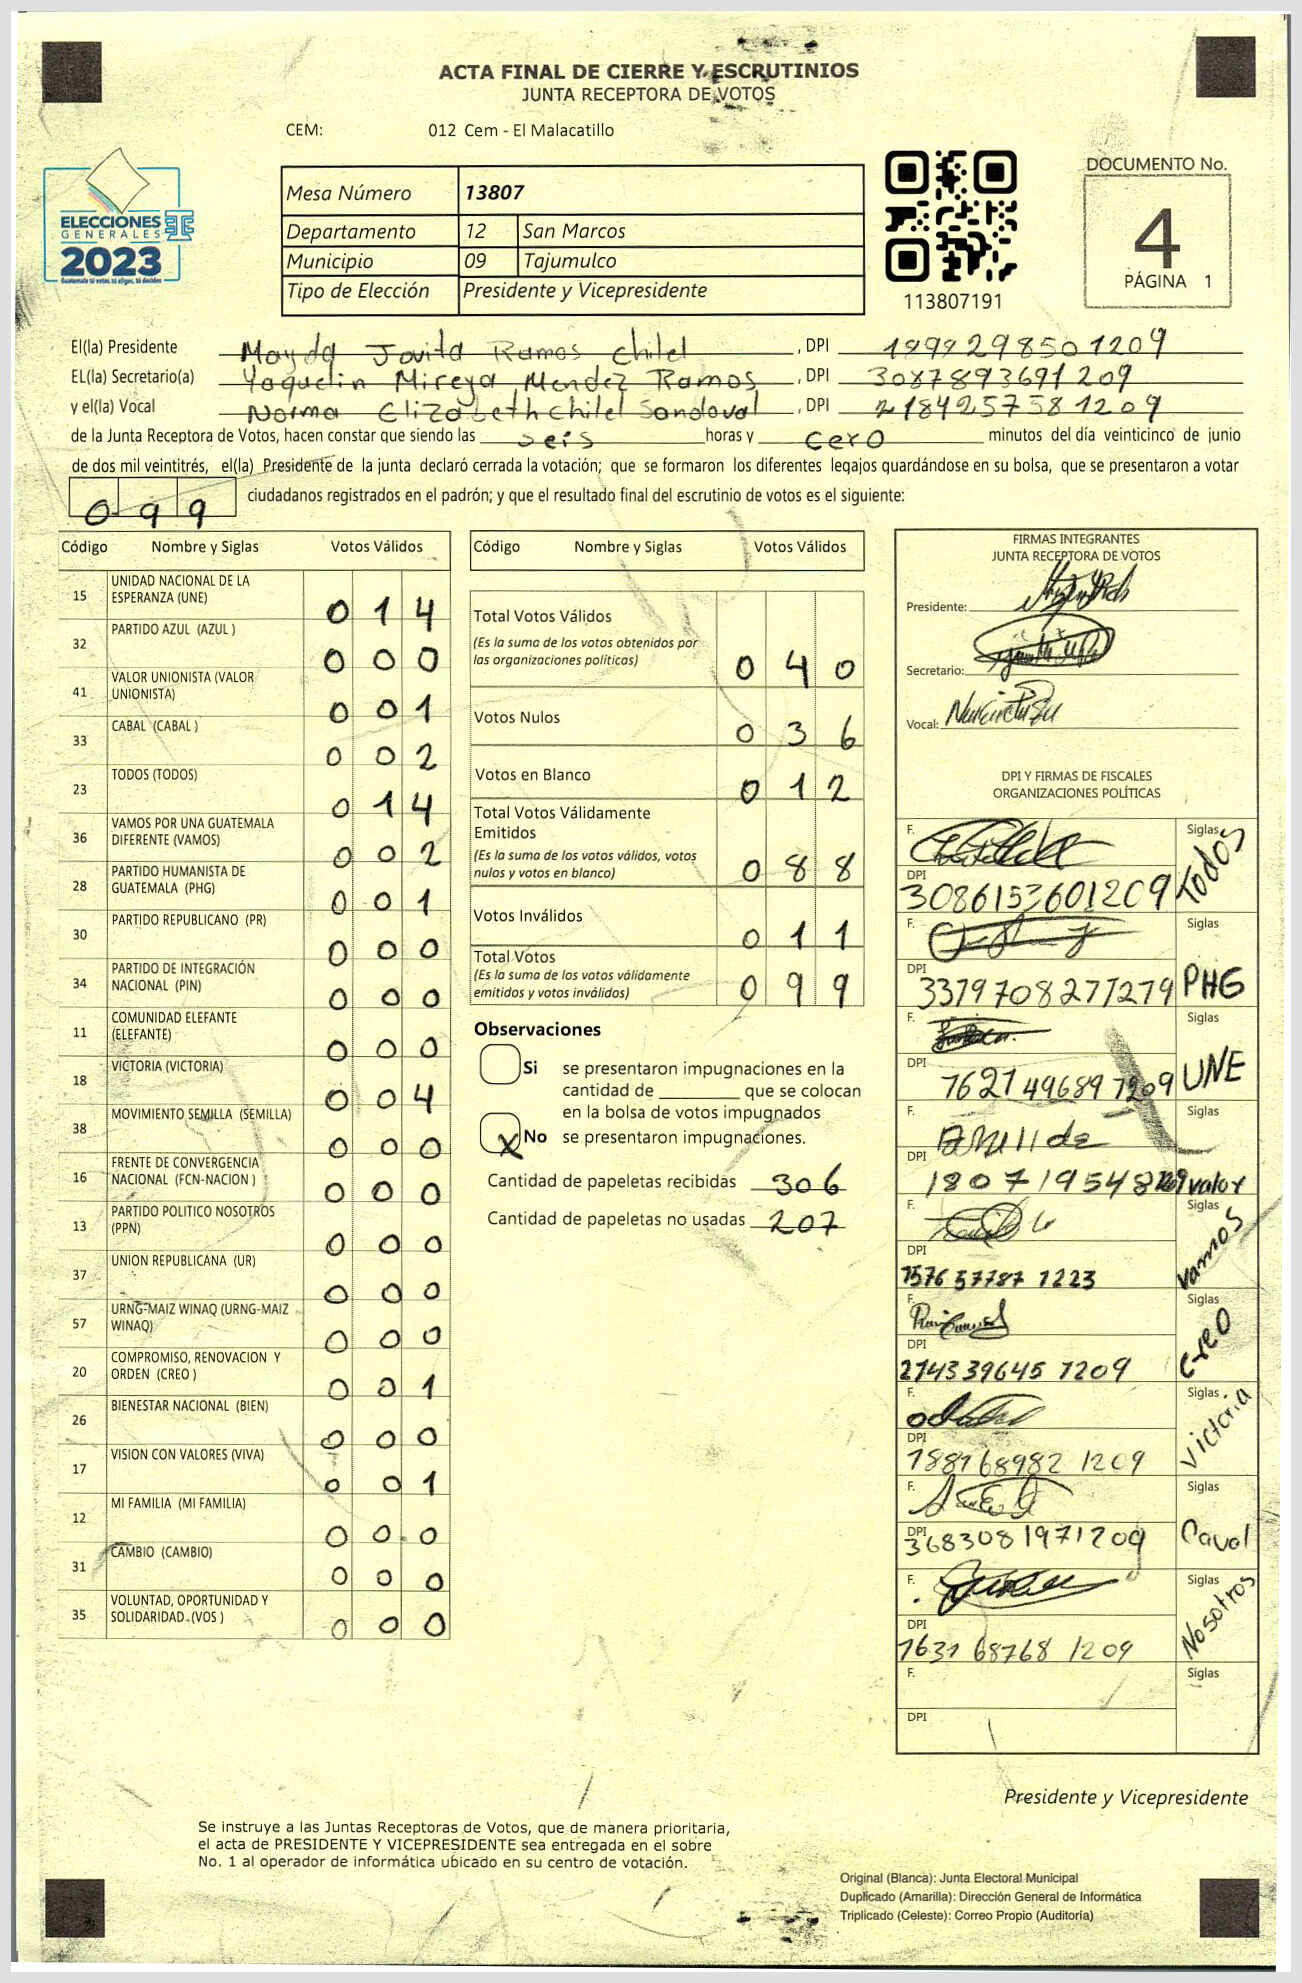 ACTA FINAL DE CIERRE Y ESCRUTINIOS
JUNTA RECEPTORA DE VOTOS
CEM: 012 Cem - El Malacatillo
ELECCIONES
GENERALES
2023
Guatemala tú votas, tú eliges, tú decides
Mesa Número 13807
Departamento 12 San Marcos
Municipio 09 Tajumulco
Tipo de Elección Presidente y Vicepresidente
113807191
DOCUMENTO No.
4
PÁGINA 1
El(la) Presidente Mayda Jovita Ramos Chilel , DPI 1999298501209
EL(la) Secretario(a) Yaquelin Mireya Mendez Ramos , DPI 3087893691209
y el(la) Vocal Norma Elizabeth Chilel Sandoval , DPI 2184257581209
de la Junta Receptora de Votos, hacen constar que siendo las seis horas y cero minutos del día veinticinco de junio
de dos mil veintitrés, el(la) Presidente de la junta declaró cerrada la votación; que se formaron los diferentes legajos guardándose en su bolsa, que se presentaron a votar
099 ciudadanos registrados en el padrón; y que el resultado final del escrutinio de votos es el siguiente:
Código Nombre y Siglas Votos Válidos
15 UNIDAD NACIONAL DE LA ESPERANZA (UNE) 014
32 PARTIDO AZUL (AZUL ) 000
41 VALOR UNIONISTA (VALOR UNIONISTA) 001
33 CABAL (CABAL ) 002
23 TODOS (TODOS) 014
36 VAMOS POR UNA GUATEMALA DIFERENTE (VAMOS) 002
28 PARTIDO HUMANISTA DE GUATEMALA (PHG) 001
30 PARTIDO REPUBLICANO (PR) 000
34 PARTIDO DE INTEGRACIÓN NACIONAL (PIN) 000
11 COMUNIDAD ELEFANTE (ELEFANTE) 000
18 VICTORIA (VICTORIA) 004
38 MOVIMIENTO SEMILLA (SEMILLA) 000
16 FRENTE DE CONVERGENCIA NACIONAL (FCN-NACION ) 000
13 PARTIDO POLITICO NOSOTROS (PPN) 000
37 UNION REPUBLICANA (UR) 000
57 URNG-MAIZ WINAQ (URNG-MAIZ WINAQ) 000
20 COMPROMISO, RENOVACION Y ORDEN (CREO ) 001
26 BIENESTAR NACIONAL (BIEN) 000
17 VISION CON VALORES (VIVA) 001
12 MI FAMILIA (MI FAMILIA) 000
31 CAMBIO (CAMBIO) 000
35 VOLUNTAD, OPORTUNIDAD Y SOLIDARIDAD (VOS ) 000
Código Nombre y Siglas Votos Válidos
Total Votos Válidos
(Es la suma de los votos obtenidos por
las organizaciones políticas) 040
Votos Nulos 036
Votos en Blanco 012
Total Votos Válidamente
Emitidos
(Es la suma de los votos válidos, votos
nulos y votos en blanco) 088
Votos Inválidos 011
Total Votos
(Es la suma de los votos válidamente
emitidos y votos inválidos) 099
Observaciones
Si se presentaron impugnaciones en la
cantidad de ________ que se colocan
en la bolsa de votos impugnados
X No se presentaron impugnaciones.
Cantidad de papeletas recibidas 306
Cantidad de papeletas no usadas 207
FIRMAS INTEGRANTES
JUNTA RECEPTORA DE VOTOS
Presidente:
Secretario:
Vocal:
DPI Y FIRMAS DE FISCALES
ORGANIZACIONES POLÍTICAS
F. Siglas Todos
DPI 3086153601209
F. Siglas PHG
DPI 3379708271279
F. Siglas UNE
DPI 1621496891209
F. Siglas valor
DPI 1807195481209
F. Siglas vamos
DPI 1576577871223
F. Siglas creo
DPI 2143396451209
F. Siglas Victoria
DPI 1881689821209
F. Siglas Caval
DPI 3683081971209
F. Siglas Nosotros
DPI 1631687681209
F. Siglas
DPI
Presidente y Vicepresidente
Se instruye a las Juntas Receptoras de Votos, que de manera prioritaria,
el acta de PRESIDENTE Y VICEPRESIDENTE sea entregada en el sobre
No. 1 al operador de informática ubicado en su centro de votación.
Original (Blanca): Junta Electoral Municipal
Duplicado (Amarilla): Dirección General de Informática
Triplicado (Celeste): Correo Propio (Auditoría)